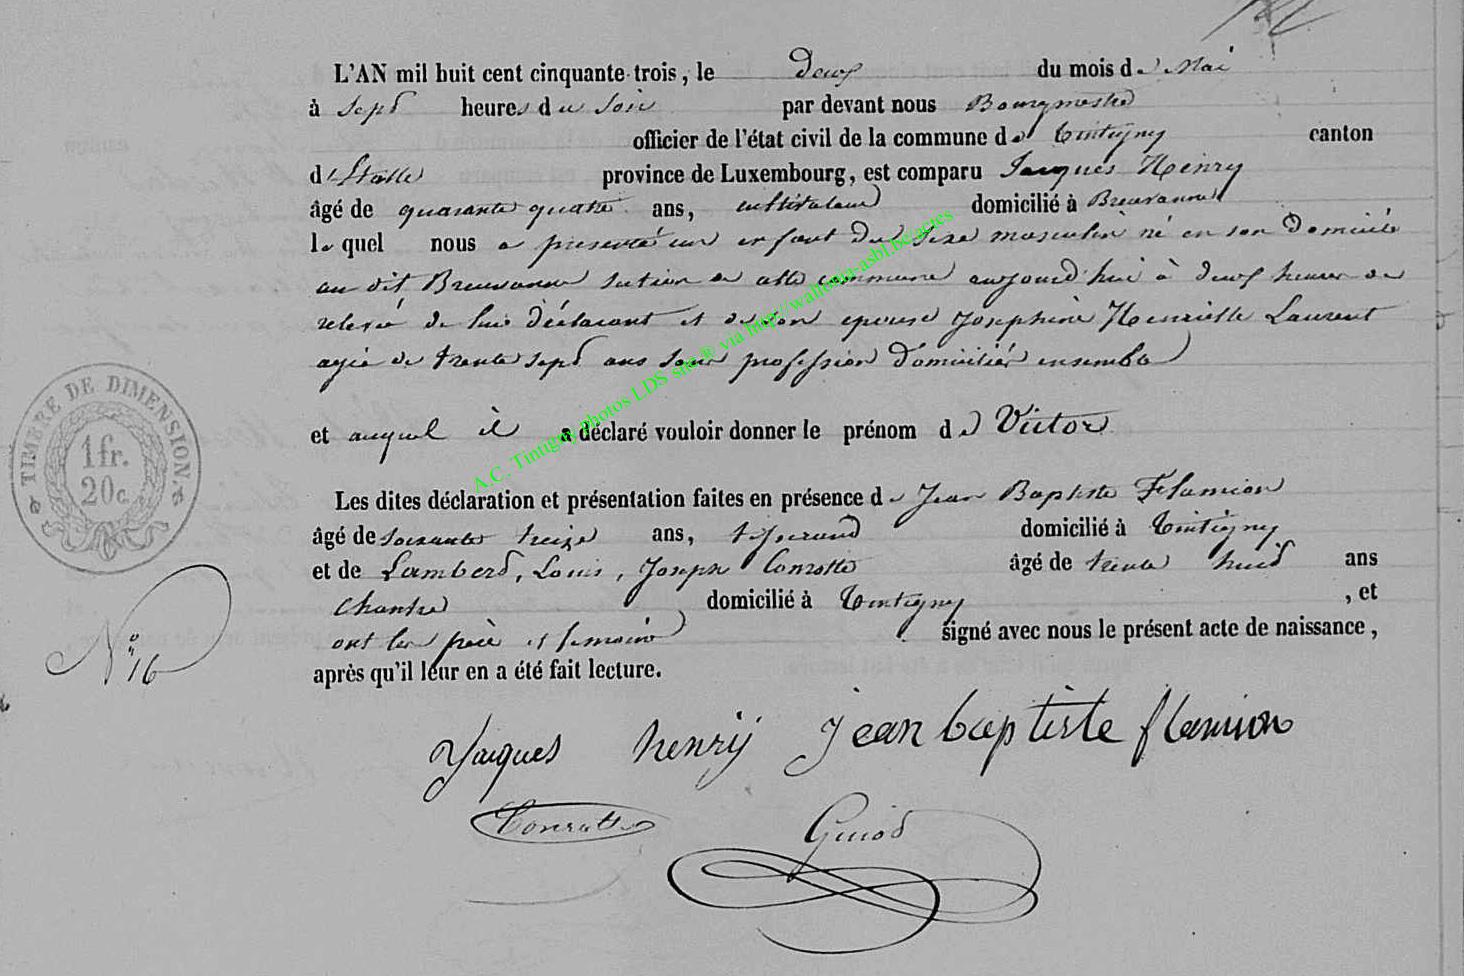 L'AN mil huit cent cinquante-trois, le deux du mois de Mai
à sept heures du soir par devant nous Bourgmestre
officier de l'état civil de la commune de Tintigny canton
d'Etalle province de Luxembourg, est comparu Jacques Henry
âgé de quarante quatre ans, cultivateur domicilié à Breuvanne
lequel nous a présenté un enfant du sexe masculin né en son domicile
au dit Breuvanne section de cette commune aujourd'hui à deux heures de
relevée de lui déclarant et de son épouse Joséphine Henriette Laurent
agée de trente sept ans sans profession domiciliés ensemble
et auquel il a déclaré vouloir donner le prénom de Victor
Les dites déclaration et présentation faites en présence de Jean Baptiste Flamion
âgé de soixante treize ans, tisserand domicilié à Tintigny
et de Lambert, Louis, Joseph Conrotte âgé de trente huit ans
Chantre domicilié à Tintigny, et
ont les père et témoins signé avec nous le présent acte de naissance,
après qu'il leur en a été fait lecture.
N° 16
Jacques henrÿ jean baptiste flamion
Conrotte Guiot
TIMBRE DE DIMENSION.
1 fr.
20 c.
A.C. Tintigny, photos LDS site ® via http://wallonia-asbl.be/actes